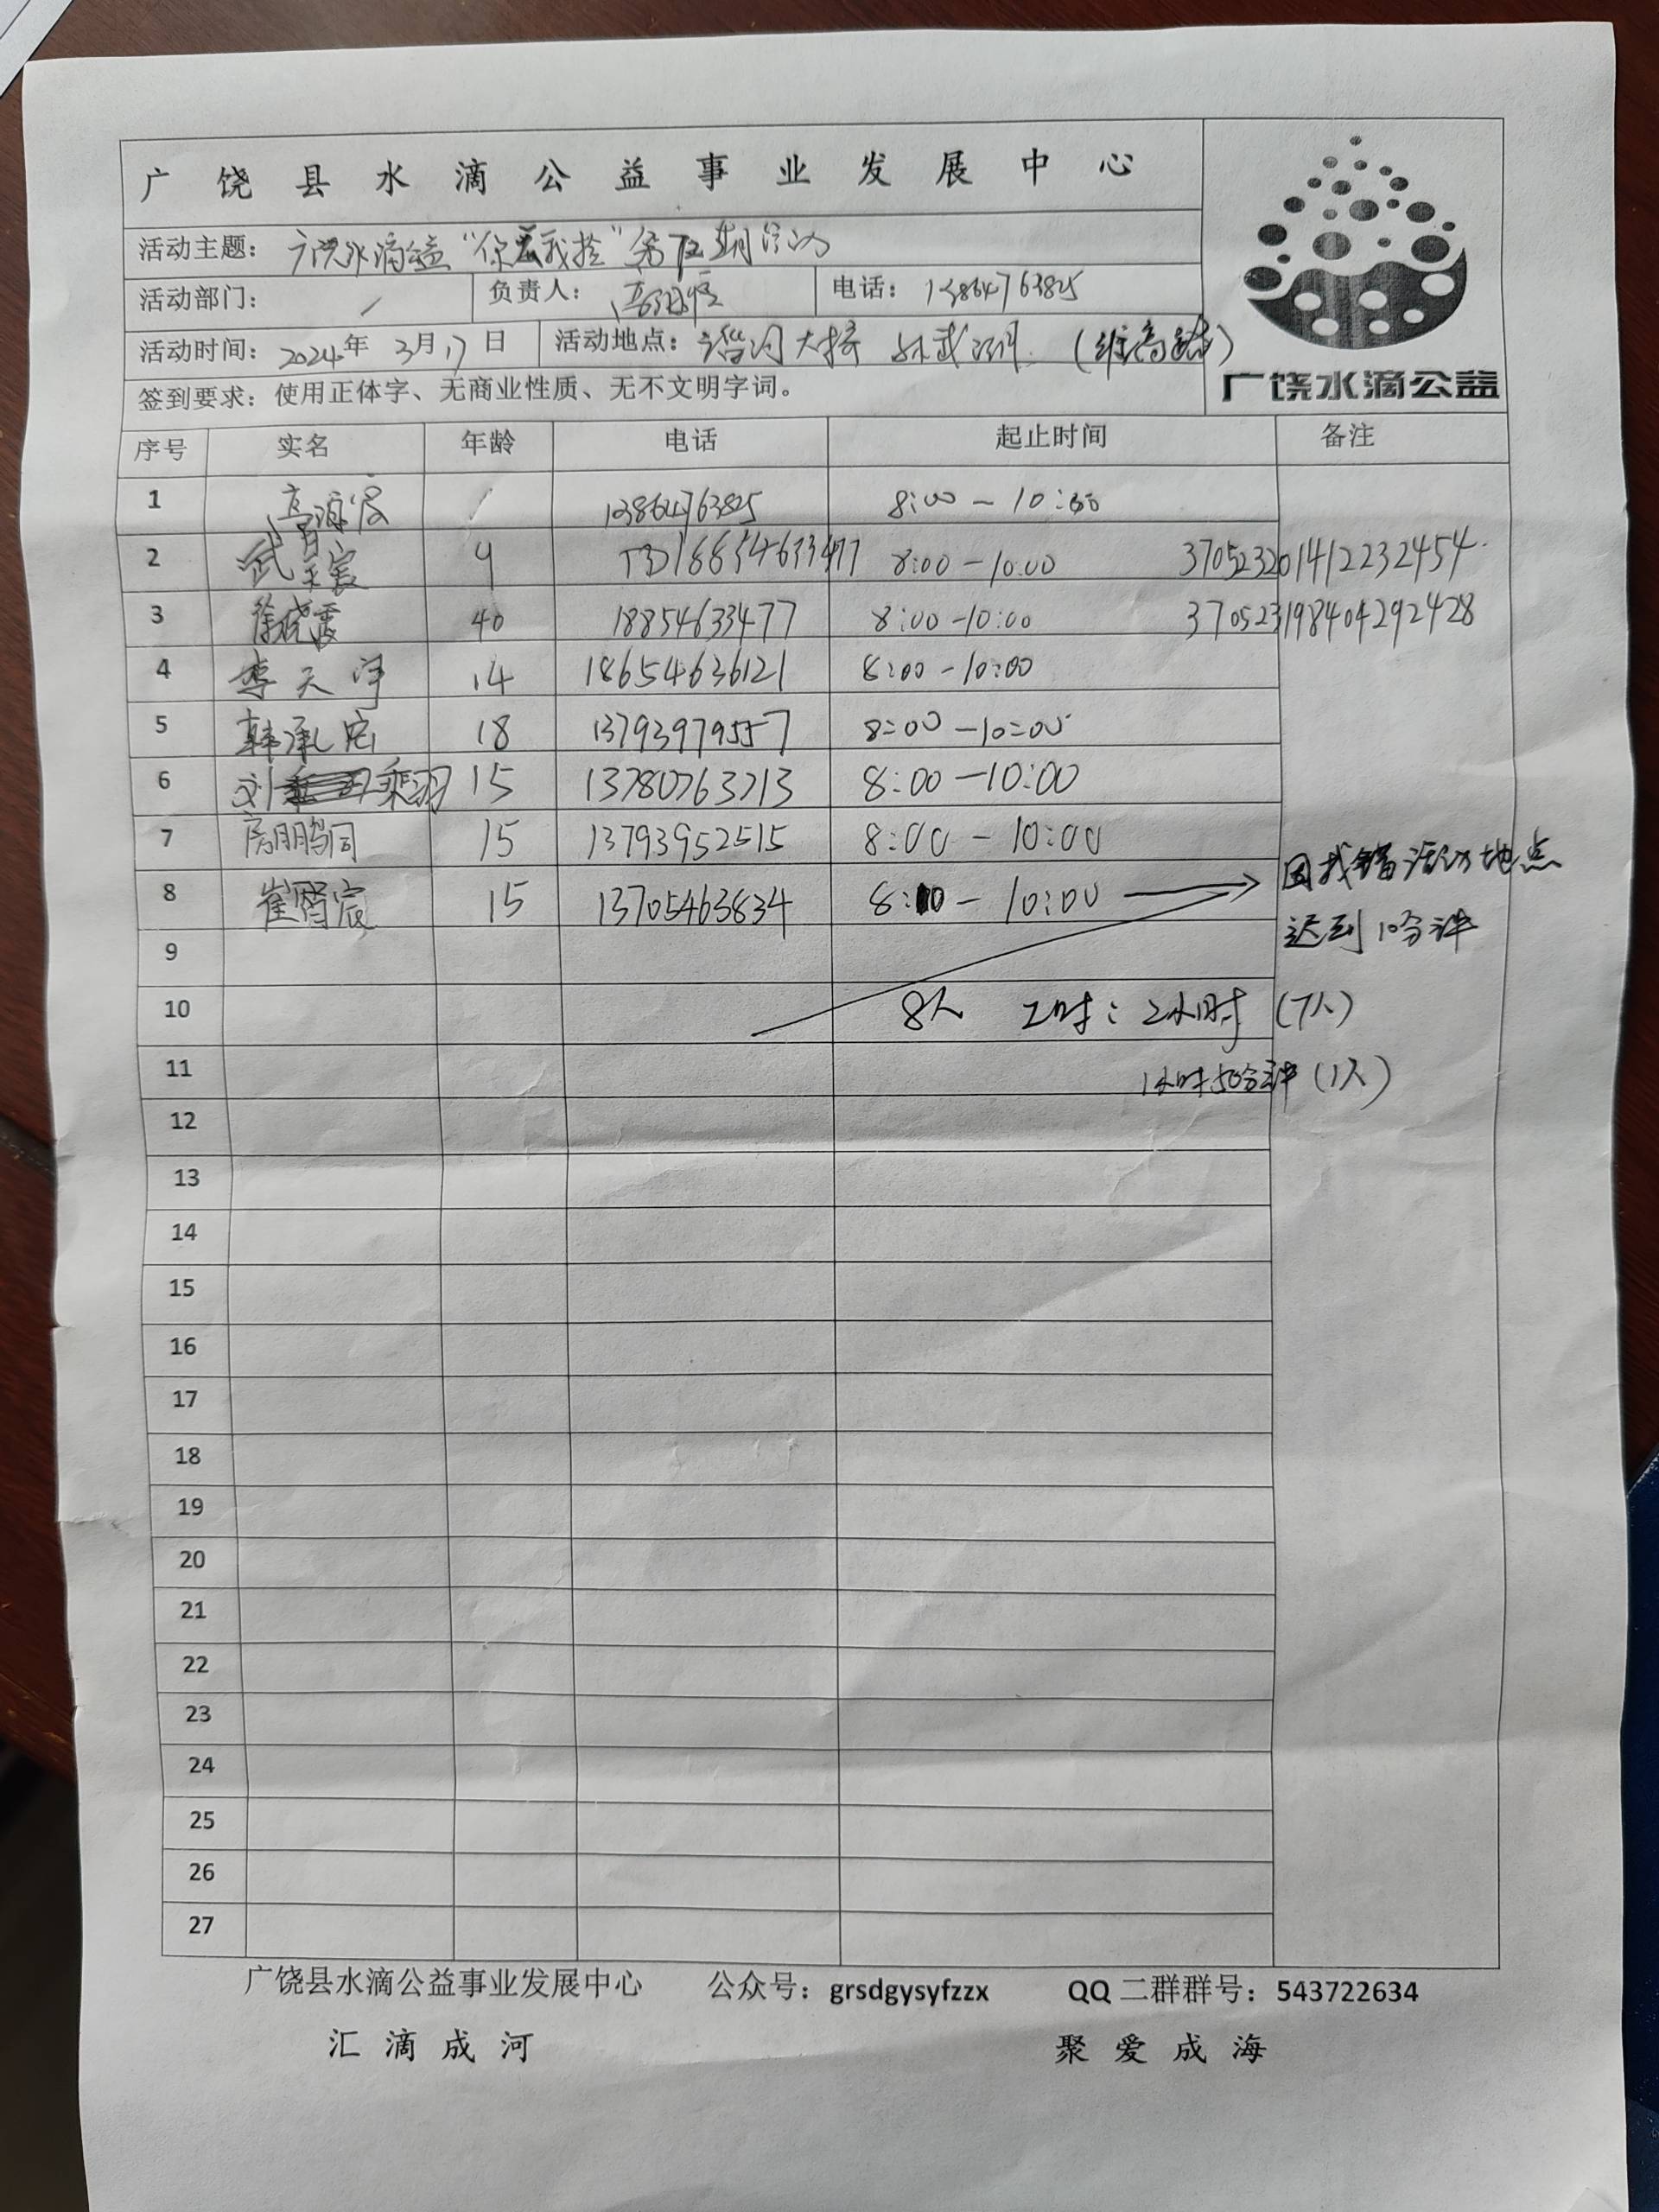 广饶县水滴公益事业发展中心
活动主题：广饶水滴公益“你丢我捡”第五期活动
活动部门： / 负责人： 电话：13864763825
活动时间：2024年3月17日 活动地点：大桥 孙武
签到要求：使用正体字、无商业性质、无不文明字词。
广饶水滴公益
序号 实名 年龄 电话 起止时间 备注
1 高 / 13864763825 8:00-10:00
2 武 9 8:00-10:00 370523201412232454
3 徐晓霞 40 18854633477 8:00-10:00 370523198404292428
4 李天宇 14 18654636121 8:00-10:00
5 韩承宏 18 13793979557 8:00-10:00
6 刘乘羽 15 13780763713 8:00-10:00
7 房鹏 15 13793952515 8:00-10:00
8 崔 15 13705463834 8:10-10:00 因找错活动地点
迟到10分钟
9
10 8人 工时：2小时（7人）
11 1小时50分钟（1人）
12
13
14
15
16
17
18
19
20
21
22
23
24
25
26
27
广饶县水滴公益事业发展中心 公众号：grsdgysyfzzx QQ二群群号：543722634
汇滴成河 聚爱成海